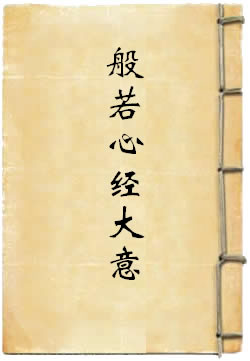 般若心经大意